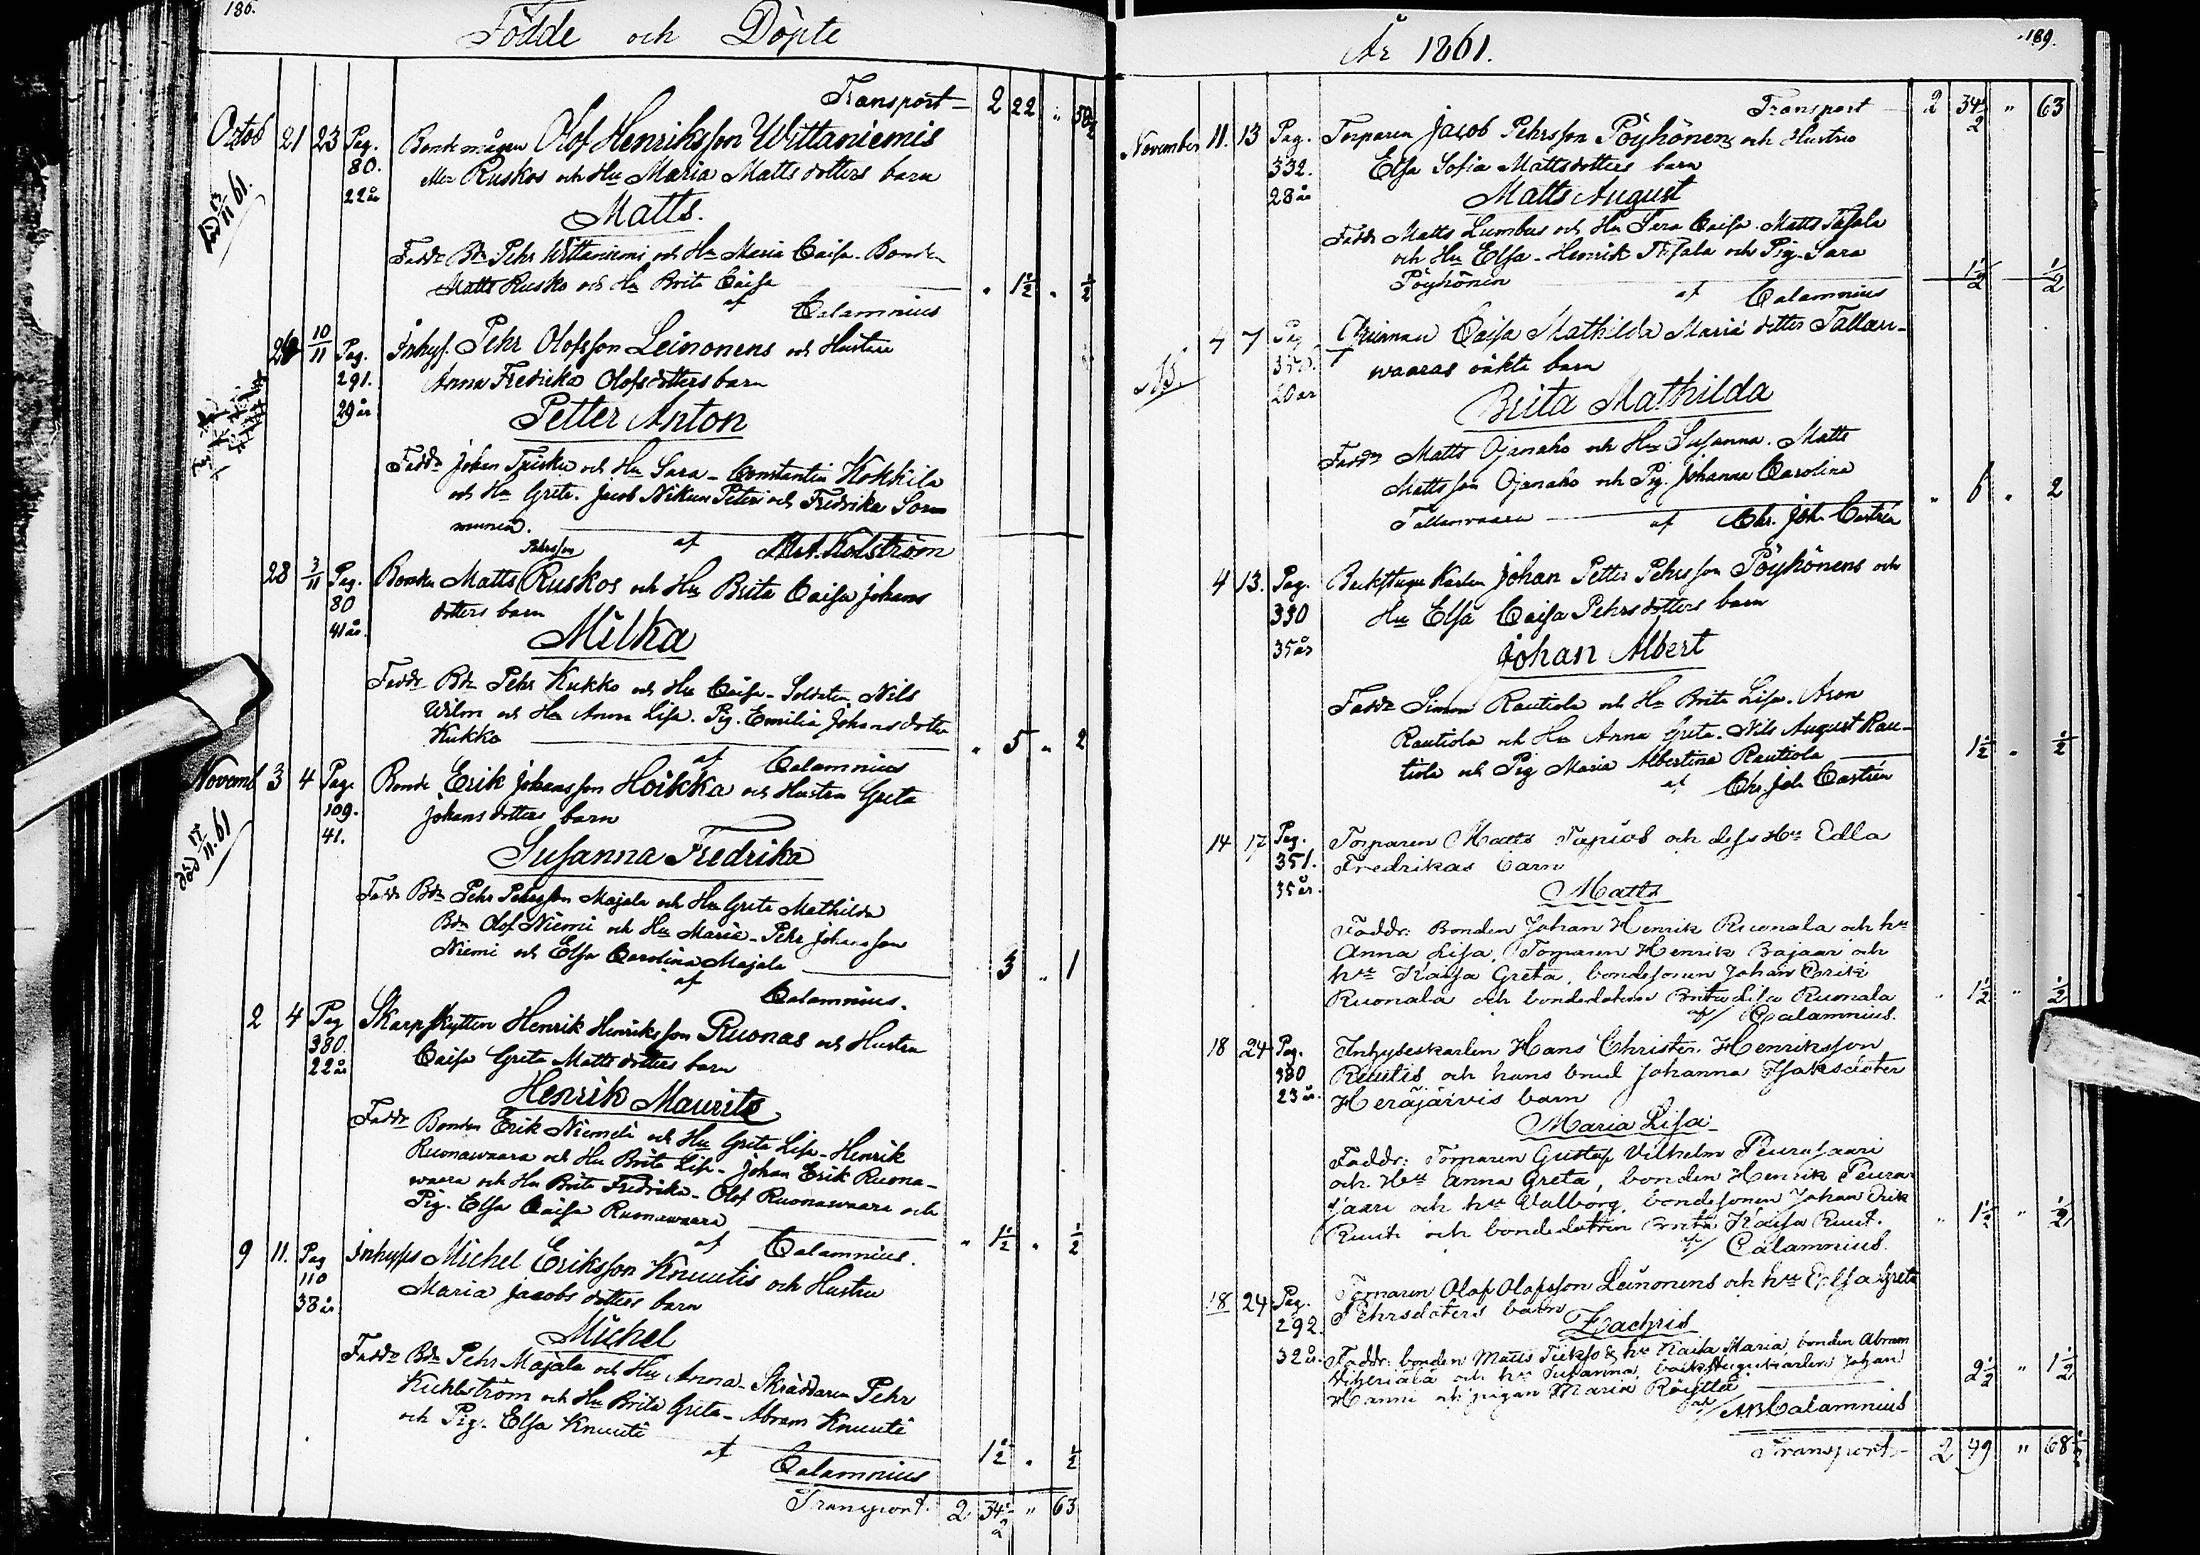 186.
Födde och Döpte
Transport 2 22 " 58½
Octob 21 23 Pag. Bondemågen Olof Henriksson Wittaniemis
80. eller Ruskos och Hu Maria Mattsdotters barn
22 år
Matts.
död 13/11 61.
Faddr Bdn Pehr Wittaniemi och Hu Maria Caisa. Bonden
Matts Rusko och Hu Brita Caisa " 1½ " ½
af Calamnius
10/11 Pag. Inhys. Pehr Olofsson Leinonens och Hustru
291. Anna Fredrika Olofsdotters barn
29 år
Petter Anton
Faddr Johan och Hu Sara - Constantin Kokkila
och Hu Greta. Jacob och Fredrika Sor-
munen.
af Kolström
28 3/11 Pag. Bonden Matts Pehrsson Ruskos och Hu Brita Caisa Johans
80 dotters barn
41 år.
Milka
Faddr Bdn Pehr Kukko och Hu Caisa - Soldaten Nils
Wilm och Hu Anna Lisa. Pig. Emilia Johansdotter
Kukko " 5 " 2
af Calamnius
Novemb 3 4 Pag. Bonde Erik Johansson Hoikka och Hustru Greta
109. Johansdotters barn
41.
Susanna Fredrika
död 17/11. 61
Faddr Bdn Pehr Pehrsson Majala och Hu Greta Mathilda
Bdn Olof Niemi och Hu Maria - Pehr Johansson
Niemi och Elsa Carolina Majala 3 " 1
af Calamnius.
2 4 Pag Skarpskytten Henrik Henriksson Ruonas och Hustru
380. Caisa Greta Mattsdotters barn
22 år
Henrik Maurits
Faddr Bonden Erik Niemelä och Hu Greta Lisa - Henrik
Ruonawaara och Hu Brita Lisa - Johan Erik Ruona-
waara och Hu Brita Fredrika - Olof Ruonawaara och
Pig. Elsa Caisa Ruonawaara " 1½ " ½
af Calamnius.
9 11. Pag Inhyses Michel Eriksson Knuutis och Hustru
110 Maria Jacobsdotters barn
38 år
Michel
Faddr Bdn Pehr Majala och Hu Anna - Skräddaren Pehr
Kuhlström och Hu Brita Greta - Abram Knuuti
och Pig. Elsa Knuuti 1½ " ½
af Calamnius
Transport. 2 34½ " 63
189.
År 1861.
Transport 2 34½ " 63
November 11. 13 Pag. Torparen Jacob Pehrsson Pöyhönens och Hustru
332. Elsa Sofia Mattsdotters barn
28 år
Matts August
Faddr Matts Lumbus och Hu Caisa. Matts Tapala
och Hu Elsa - Henrik och Pig. Sara
Pöyhönen 1½ ½
af Calamnius
4 7 Pag Qvinnan Caisa Mathilda Mariædotter Tallan-
waaras oäkta barn
20 år
Brita Mathilda
Faddr Matts Ojanaho och Hu Susanna. Matts
Mattsson Ojanaho och Pig. Johanna Carolina
Tallanwaara " 6 " 2
af Chr. Joh. Castrén
4 13. Pag. Backstugukarlen Johan Petter Pehrsson Pöyhönens och
330 Hu Elsa Caisa Pehrsdotters barn
35 år
Johan Albert
Faddr Simon Rautiola och Hu Brita Lisa. Aron
Rautiola och Hu Anna Greta. Nils August Rau-
tiola och Pig Maria Albertina Rautiola 1½ " ½
af Chr. Joh. Castrén
14 17 Pag. Torparen Matts Tapios och dess Hu Edla
351. Fredrikas barn
35 år.
Matts
Faddr: Bonden Johan Henrik Ruonala och hu
Anna Lisa, Torparen Henrik Bajaari och
hu Kaisa Greta, bondesonen Johan Erik
Ruonala och bondedottren Brita Lisa Ruonala 1½ " ½
af/ Calamnius.
18 24 Pag. Inhyseskarlen Hans Christer Henriksson
380 Ruutis och hans brud Johanna Isaksdoter
23 år. Heräjärvis barn
Maria Lisa
Faddr: Torparen Gustaf Vilhelm Peurasaari
och Hu Anna Greta, bonden Henrik Peura-
saari och hu Valborg, bondesonen Johan Erik
Ruuti och bondedottren Brita Kaisa Ruut. " 1½ " ½
af/ Calamnius.
18 24 Pag. Torparen Olof Olofsson Leinonens och hu Elsa Greta
292. Pehrsdoters barn
Zachris
32 år. Faddr: bonden Matts och hu Kaisa Maria, bonden Abram
och hu Susanna, backstugukarlen Johan
Hanni och pigan Maria 2½ " 1½
af/ Calamnius
Transport 2 49 " 68½